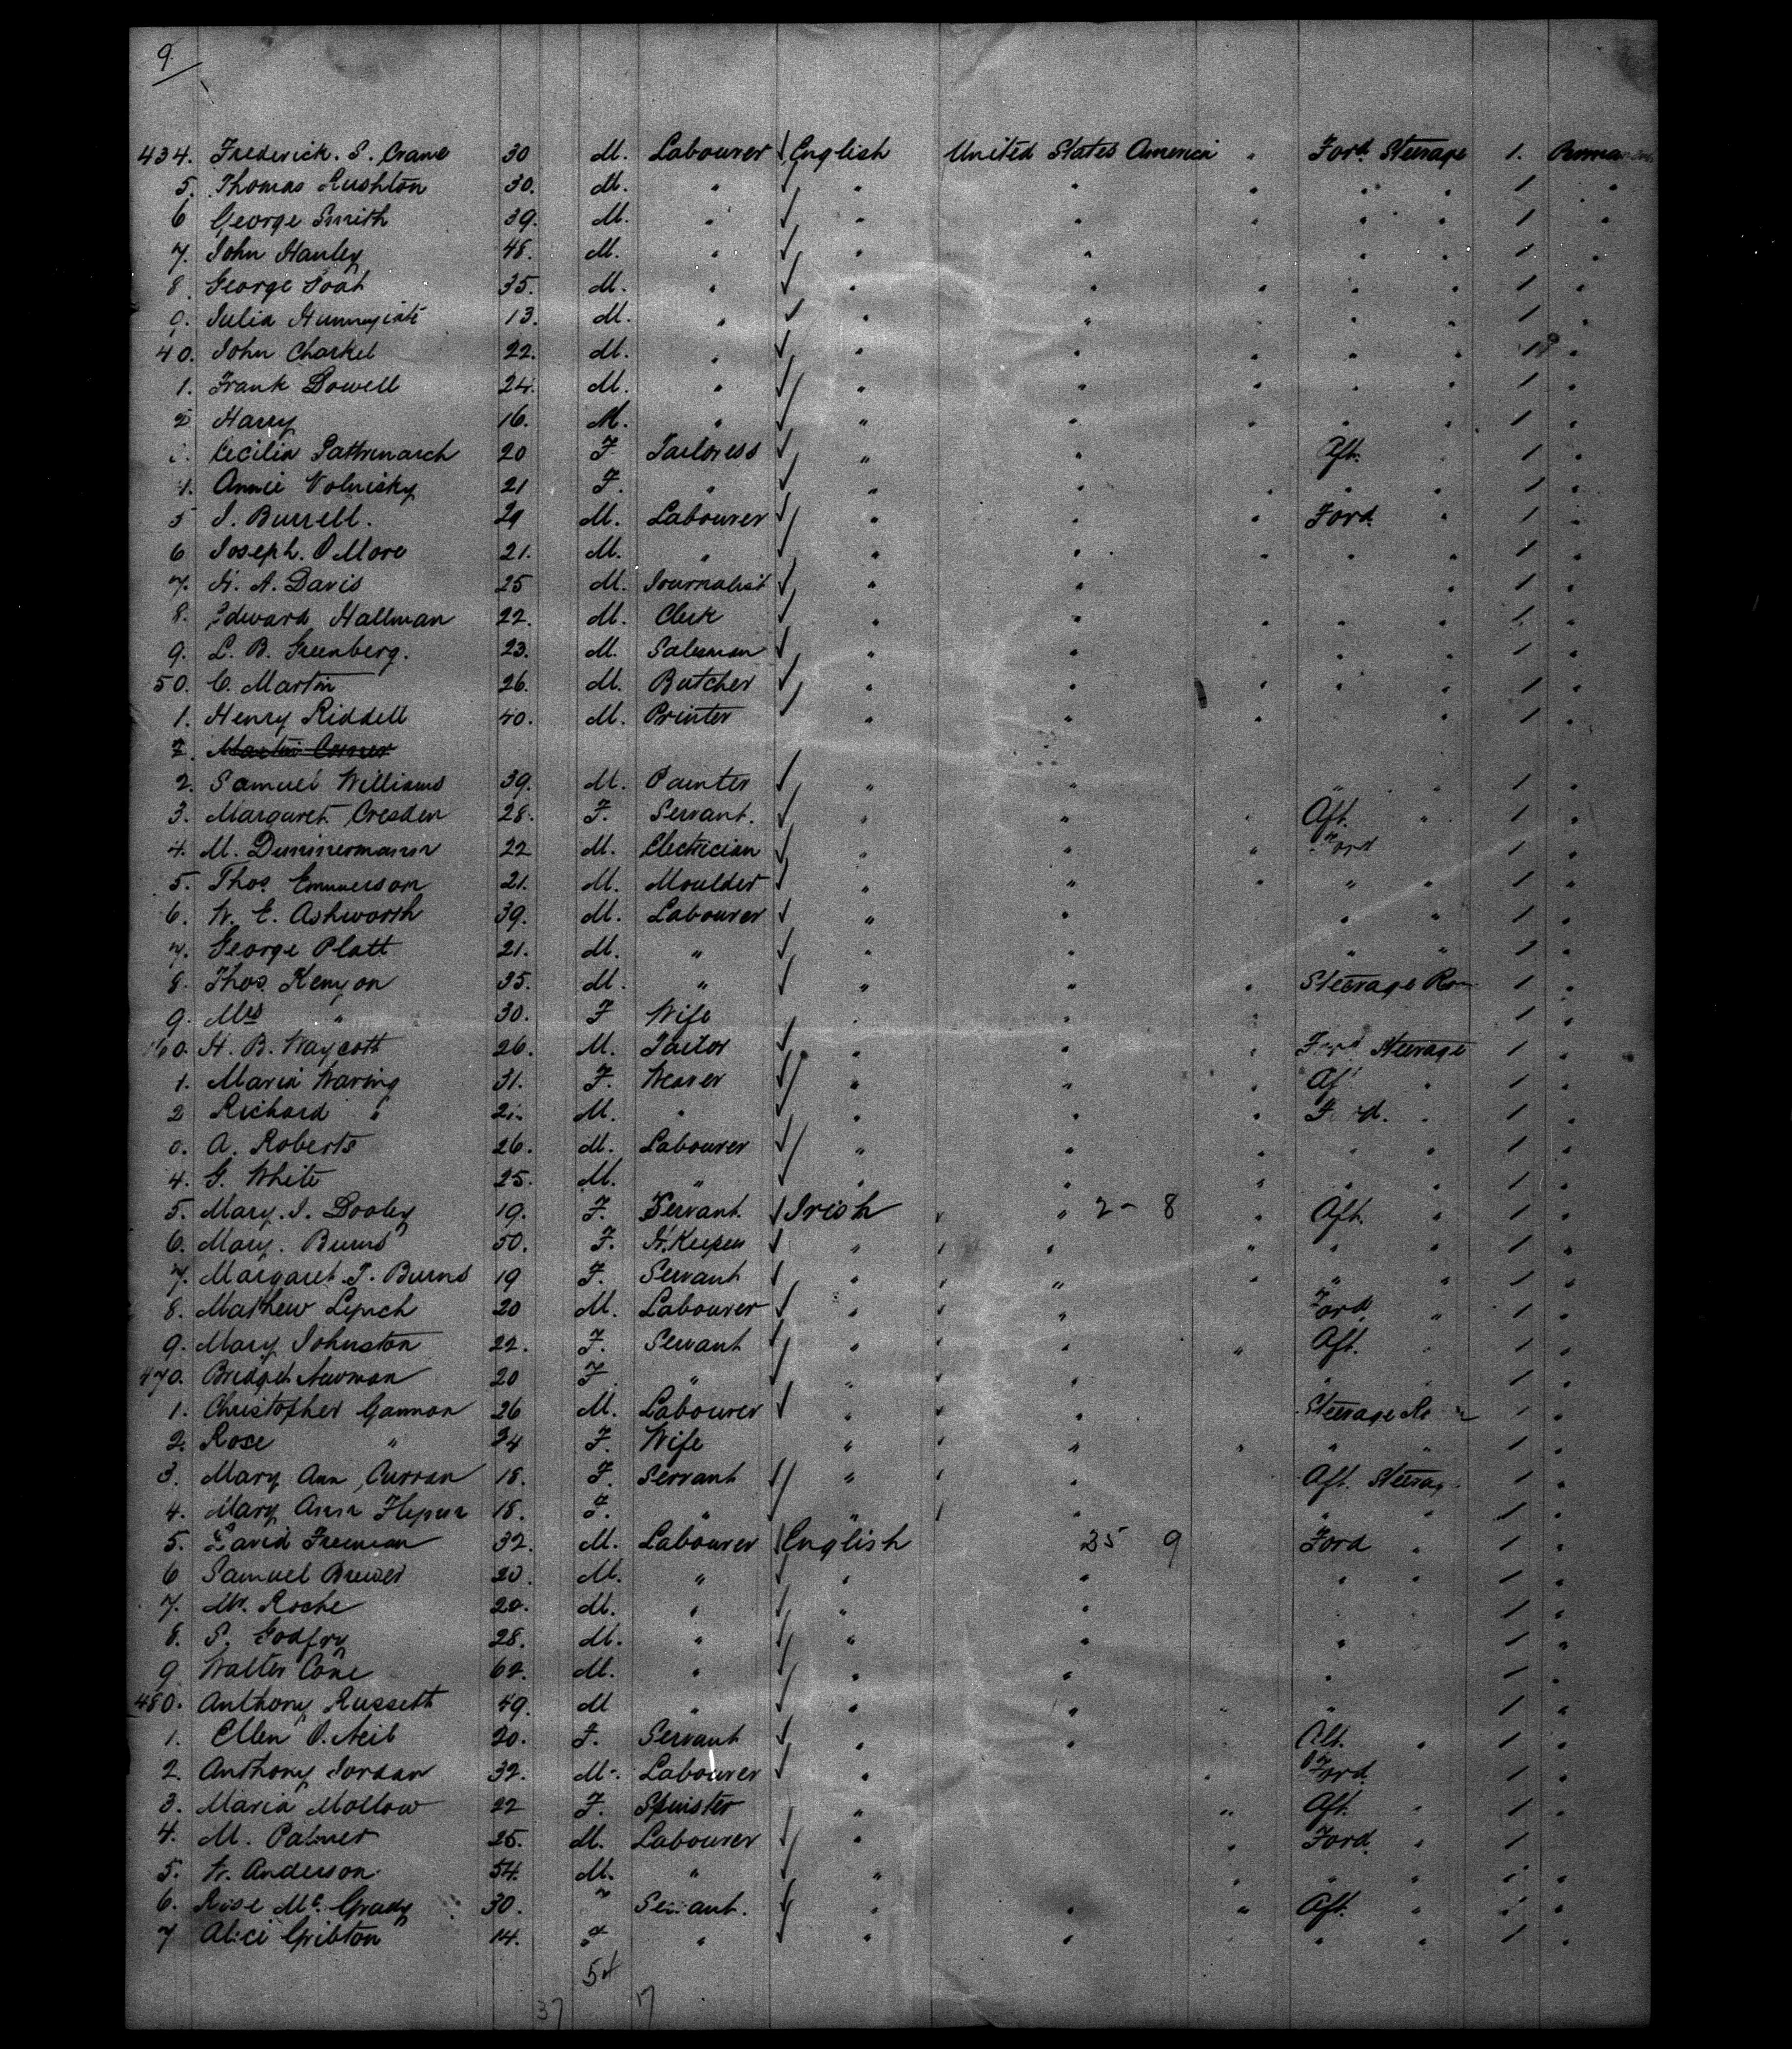 9
434. Frederick. S. Crane 30 M. Labourer ✓ English United States America " Ford. Steerage 1. Permanent
5. Thomas Rushton 30. M. " ✓ " " " " " 1 "
6 George Smith 39. M. " ✓ " " " " " 1 "
7. John Hanley 48. M. " ✓ " " " " 1 "
8. George 35. M. " ✓ " " " " " 1 "
9. Julia 13. M. " ✓ " " " " " 1 "
40. John Charkel 22. M. " ✓ " " " " " 1 "
1. Frank Dowell 24. M. " ✓ " " " " " 1 "
2 Harry 16. M. " ✓ " " " " " 1 "
Cecilia 20 F Tailoress ✓ " " Aft. " 1 "
4. Annie Volnisky 21 F. " ✓ " " " " " 1 "
5 J. Burrell. 29 M. Labourer ✓ " " " Ford. " 1 "
6 Joseph. O More 21. M. " ✓ " " " " " 1 "
7. H. A. Davis 25 M. Journalist ✓ " " " 1 "
8. Edward Hallman 22. M. Clerk ✓ " " " " " 1 "
9. L. B. Greenberg. 23. M. Salesman ✓ " " " " 1 "
50. C. Martin 26. M. Butcher ✓ " " " " " 1 "
1. Henry Riddell 40. M. Printer ✓ " " " " 1 "
2. Martin
2. Samuel Williams 39. M. Painter ✓ " " " " 1 "
3. Margaret Cresden 28. F. Servant. ✓ " " " Aft. " 1 "
4. M. Dunnermann 22 M. Electrician ✓ " " " Ford 1 "
5. Thos. Emmerson 21. M. Moulder ✓ " " " " " 1 "
6. W. E. Ashworth 39. M. Labourer ✓ " " " " 1 "
7. George Platt 21. M. " ✓ " " " " 1 "
8. Thos. Kenyon 35. M. " ✓ " " " Steerage 1 "
9. Mrs " 30. F Wife " " " 1 "
160. H. B. Waycott 26. M. Tailor ✓ " " " Ford Steerage 1 "
1. Maria Waring 31. F. Weaver ✓ " " " Aft " 1 "
2 Richard " M. " ✓ " " " Ford. " 1 "
A. Roberts 26. M. Labourer ✓ " " " " " 1 "
4. G. White 25. M. " ✓ " " " " " 1 "
5. Mary. J. Dooley 19. F. Servant. ✓ Irish " " 2 - 8 " Aft. " 1 "
6. Mary. Burns 50. F. H. Keeper ✓ " " " " " " 1 "
7. Margaret. T. Burns 19 F. Servant ✓ " " " " " " 1 "
8. Mathew Lynch 20 M. Labourer ✓ " " " Ford. " 1 "
9. Mary Johnston 22. F. Servant ✓ " " " " Aft. " 1 "
470. Bridget Newman 20 F " ✓ " " " " " 1 "
1. Christopher Gannon 26 M. Labourer ✓ " " " Steerage 1 "
2. Rose " 24 F. Wife " " " " " " 1 "
3. Mary Ann Curran 18. F. Servant ✓ " " " Aft. Steerage 1 "
4. Mary Ann 18. F. " ✓ " " " " " 1 "
5. David Freeman 32. M. Labourer ✓ English 35 9 Ford " 1 "
6 Samuel Brewer 20. M. " ✓ " " " " 1 "
7. Mr. Roche 20. M. " ✓ " " 1 "
8. S. Godfry 28. M. " ✓ " " " 1 "
9 Walter Cane 62. M. " ✓ " " " 1 "
480. Anthony Russeth 49. M " ✓ " " " " 1 "
1. Ellen O. Neil 20. F. Servant ✓ " " Aft. " 1 "
2. Anthony Jordan 32. M. Labourer ✓ " " Ford. 1 "
3. Maria Mollow 22 F. Spinster " " Aft. " 1 "
4. M. Palmer 25. M. Labourer ✓ " " Ford. " 1
5. W. Anderson. 54. M. " ✓ " " " " 1 "
6. Rose Mc. Grady 30. " Servant. ✓ " " " Aft. " 1 "
7 Alice Gribton 14. F " ✓ " " " " 1 "
54
37 17